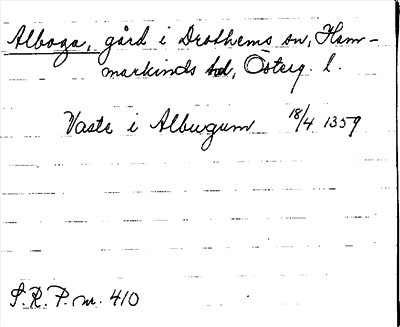 Alboga, gård i Drothems sn, Ham-
markinds hd, Österg. l.
Vaste i Albugum 18/4 1359
S. R. P. nr. 410